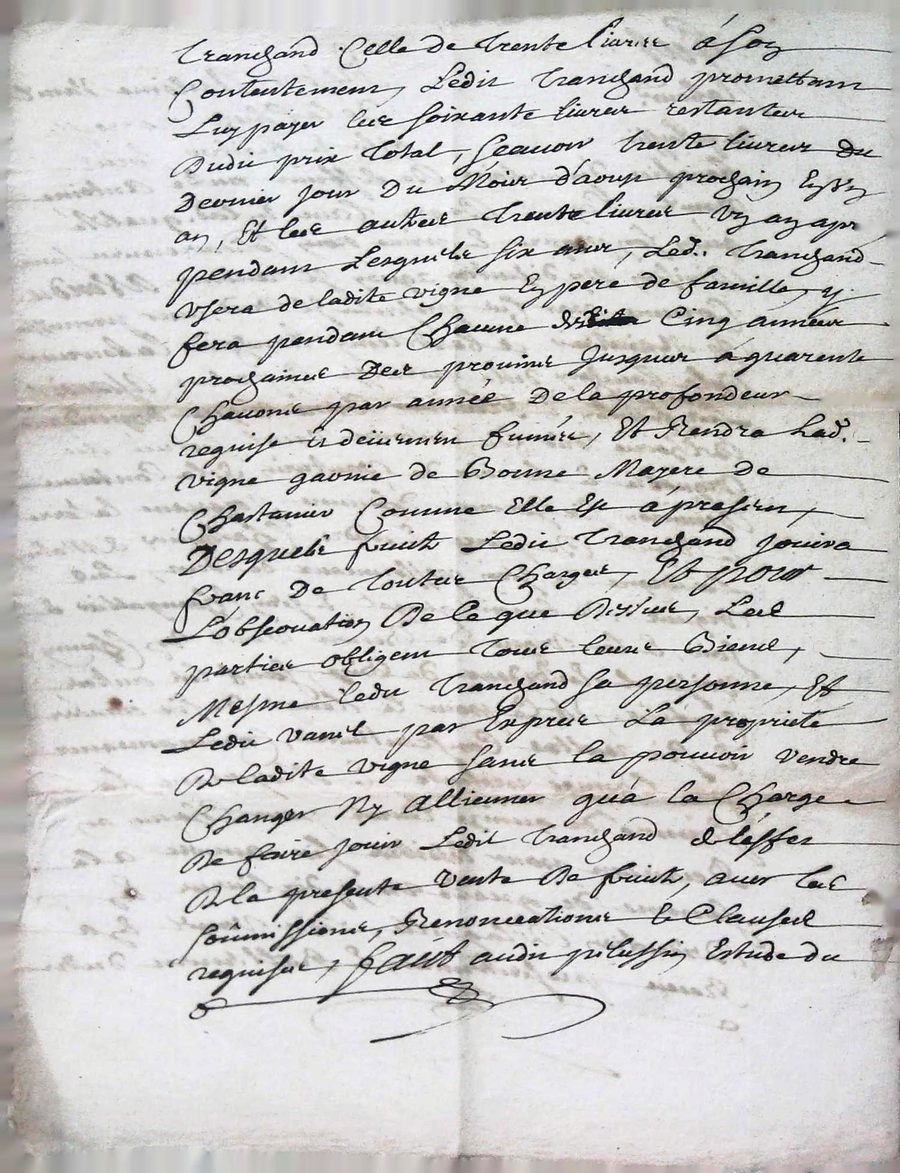 Tranchand Celle de trente livres à son
Contentement, Ledit Tranchand promettant
Luy payer les soixante livres restantes
Dudit prix total, scavoir trente livres du
Dernier jour Du Mois d'aoust prochain En un
an, Et les autres trente livres un an apr
pendant Lesquels six ans, Led. Tranchand
Usera de ladite vigne En pere de famille, y
fera pendant Chacune des Cinq années
prochaines Des provins Jusques à quarente
Chacune par année De la profondeur
requise et deüement fumés, Et Rendra Lad.
vigne garnie de Bonne Mayere de
Chastanier Comme Elle Est à present,
Desquels fruits Ledit Tranchand jouira
franc De toutes Charges, Et pour
L'observation De ce que Dessus, Les
parties obligent tous leurs Biens,
Mesme ledit Tranchand sa personne, Et
Ledit par Exprés La proprieté
De ladite vigne sans la pouvoir vendre
Changer Ny allienner qu'à la Charge
De faire jouir Ledit Tranchand de l'effet
De la presente vente De fruits, avec les
soûmissions, Renonciations & Clauses
requises, faict audit pelussin Estude du